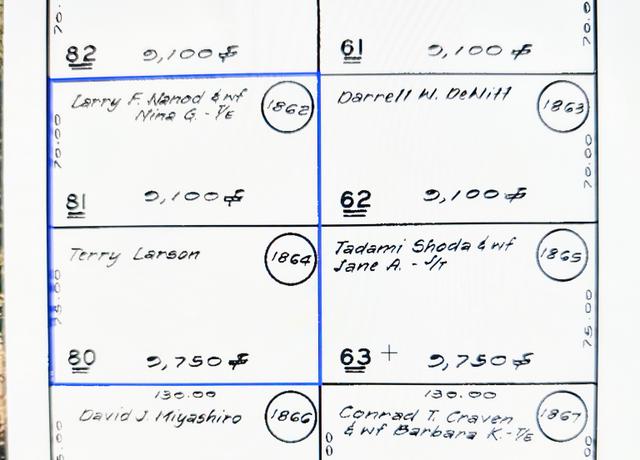 70.
82 9,100 ⌿
61 9,100 ⌿
70.0
Larry F. Nanod & wf
Nina G. - T/E
1862
70.00
81 9,100 ⌿
Darrell W. DeWitt
1863
70.00
62 9,100 ⌿
Terry Larson
1864
75.00
80 9,750 ⌿
Tadami Shoda & wf
Jane A. - J/T
1865
75.00
63 + 9,750 ⌿
130.00
David J. Miyashiro
1866
130.00
Conrad T. Craven
& wf Barbara K. - T/E
1867